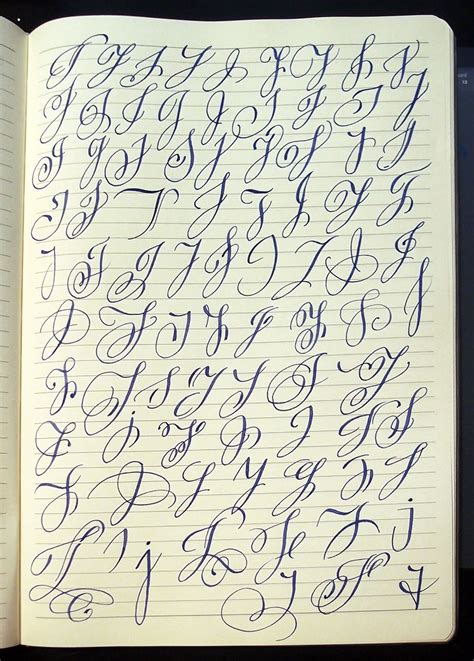 J J J J J J J J J
J J J J J J J J J J
J J J J J J J J J J
J J J J J J J J
J J J J J J J J J
J J J J J J J J
J J J J J J J J
J J J J J J J
J J J J J J J
J J j J J J j
J J J